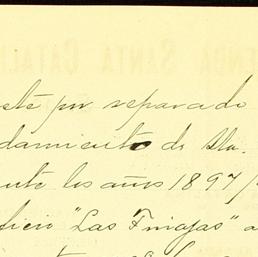 ENDA SANTA CATAL
este por separado
damiento de Sta.
ante los años 1897/
ficio "Las Tinajas" a